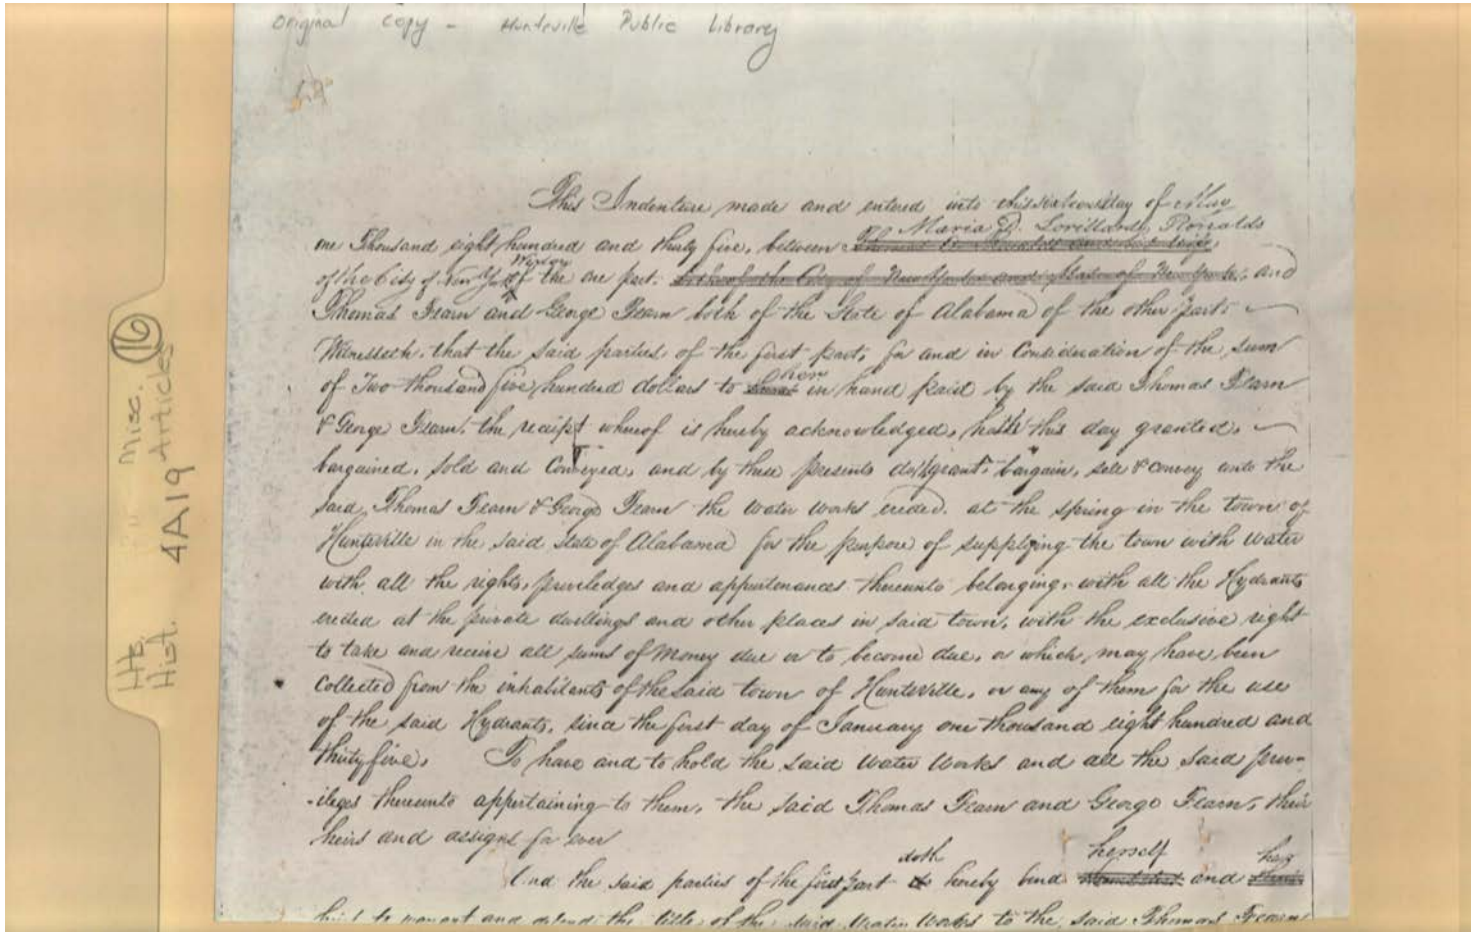 Original copy - Huntsville Public Library
Hb. " Misc. 16
Hist. 4A19 Articles
This Indenture made and entered into this day of May
Maria D. Lorillard Ronalds
one Thousand eight hundred and thirty five, between
Widow
of the City of New York of the one part. and
Thomas Fearn and George Fearn both of the State of Alabama of the other part.
Witnesseth, that the said parties of the first part, for and in Consideration of the sum
her
of Two thousand five hundred dollars to in hand paid by the said Thomas Fearn
& George Fearn, the receipt whereof is hereby acknowledged, hath this day granted,
bargained, sold and Conveyed, and by these presents doth grant, bargain, sell & convey unto the
said Thomas Fearn & George Fearn the Water Works erected at the spring in the town of
Huntsville in the said State of Alabama for the purpose of supplying the town with Water
with all the rights, priviledges and appurtenances thereunto belonging, with all the Hydrants
erected at the private dwellings and other places in said town, with the exclusive right
to take and receive all sums of Money due or to become due, or which may have been
Collected from the inhabitants of the said town of Huntsville, or any of them for the use
of the said Hydrants, since the first day of January one thousand eight hundred and
thirty five. To have and to hold the said Water Works and all the said priv-
-ileges thereunto appertaining to them, the said Thomas Fearn and George Fearn, their
heirs and assigns for ever
doth herself her
And the said parties of the first part hereby bind and
heirs to warrant and defend the title of the said Water Works to the said Thomas Fearn